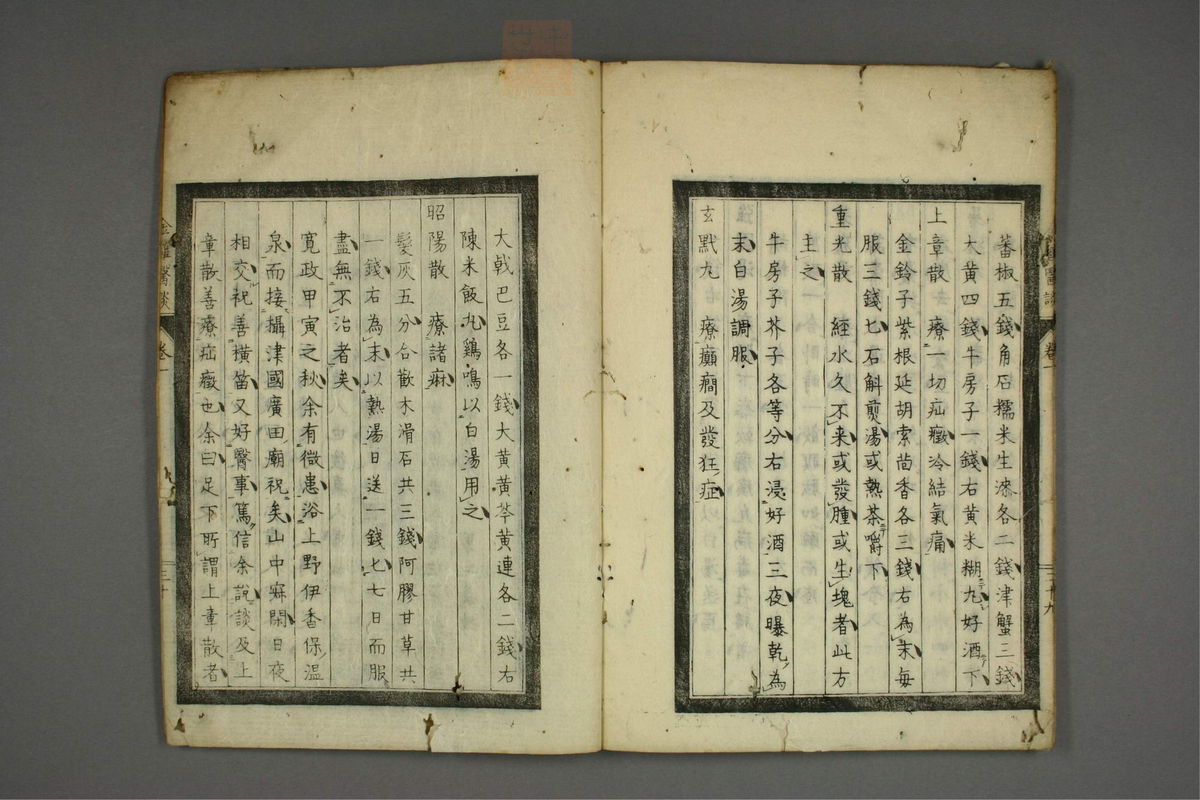 蕃椒五錢角石糯米生漆各二錢津蟹三錢
大黄四錢牛房子一錢右黄米糊丸好酒下
上章散　療一切疝癥冷結氣痛
金鈴子紫根延胡索茴香各三錢右為末毎
服三錢匕石斛煎湯或熟茶嚼下
重光散　經水久不来或發腫或生塊者此方
主之
牛房子芥子各等分右浸好酒三夜曝乾為
末白湯調服
玄黙丸　療癲癇及發狂症
大戟巴豆各一錢大黄黄芩黄連各二錢右
陳米飯丸鷄鳴以白湯用之
昭陽散　療諸痳
髪灰五分合歡木滑石共三錢阿膠甘草共
一錢右為末以熟湯日送一錢匕七日而服
盡無不治者矣
寛政甲寅之秋余有微患浴上野伊香保温
泉而接攝津國廣田廟祝矣山中寂閑日夜
相交祝善横笛又好醫事篤信余説談及上
章散善療疝癥也余曰足下所謂上章散者
醫談
卷一
三十
醫談
卷一
二十九